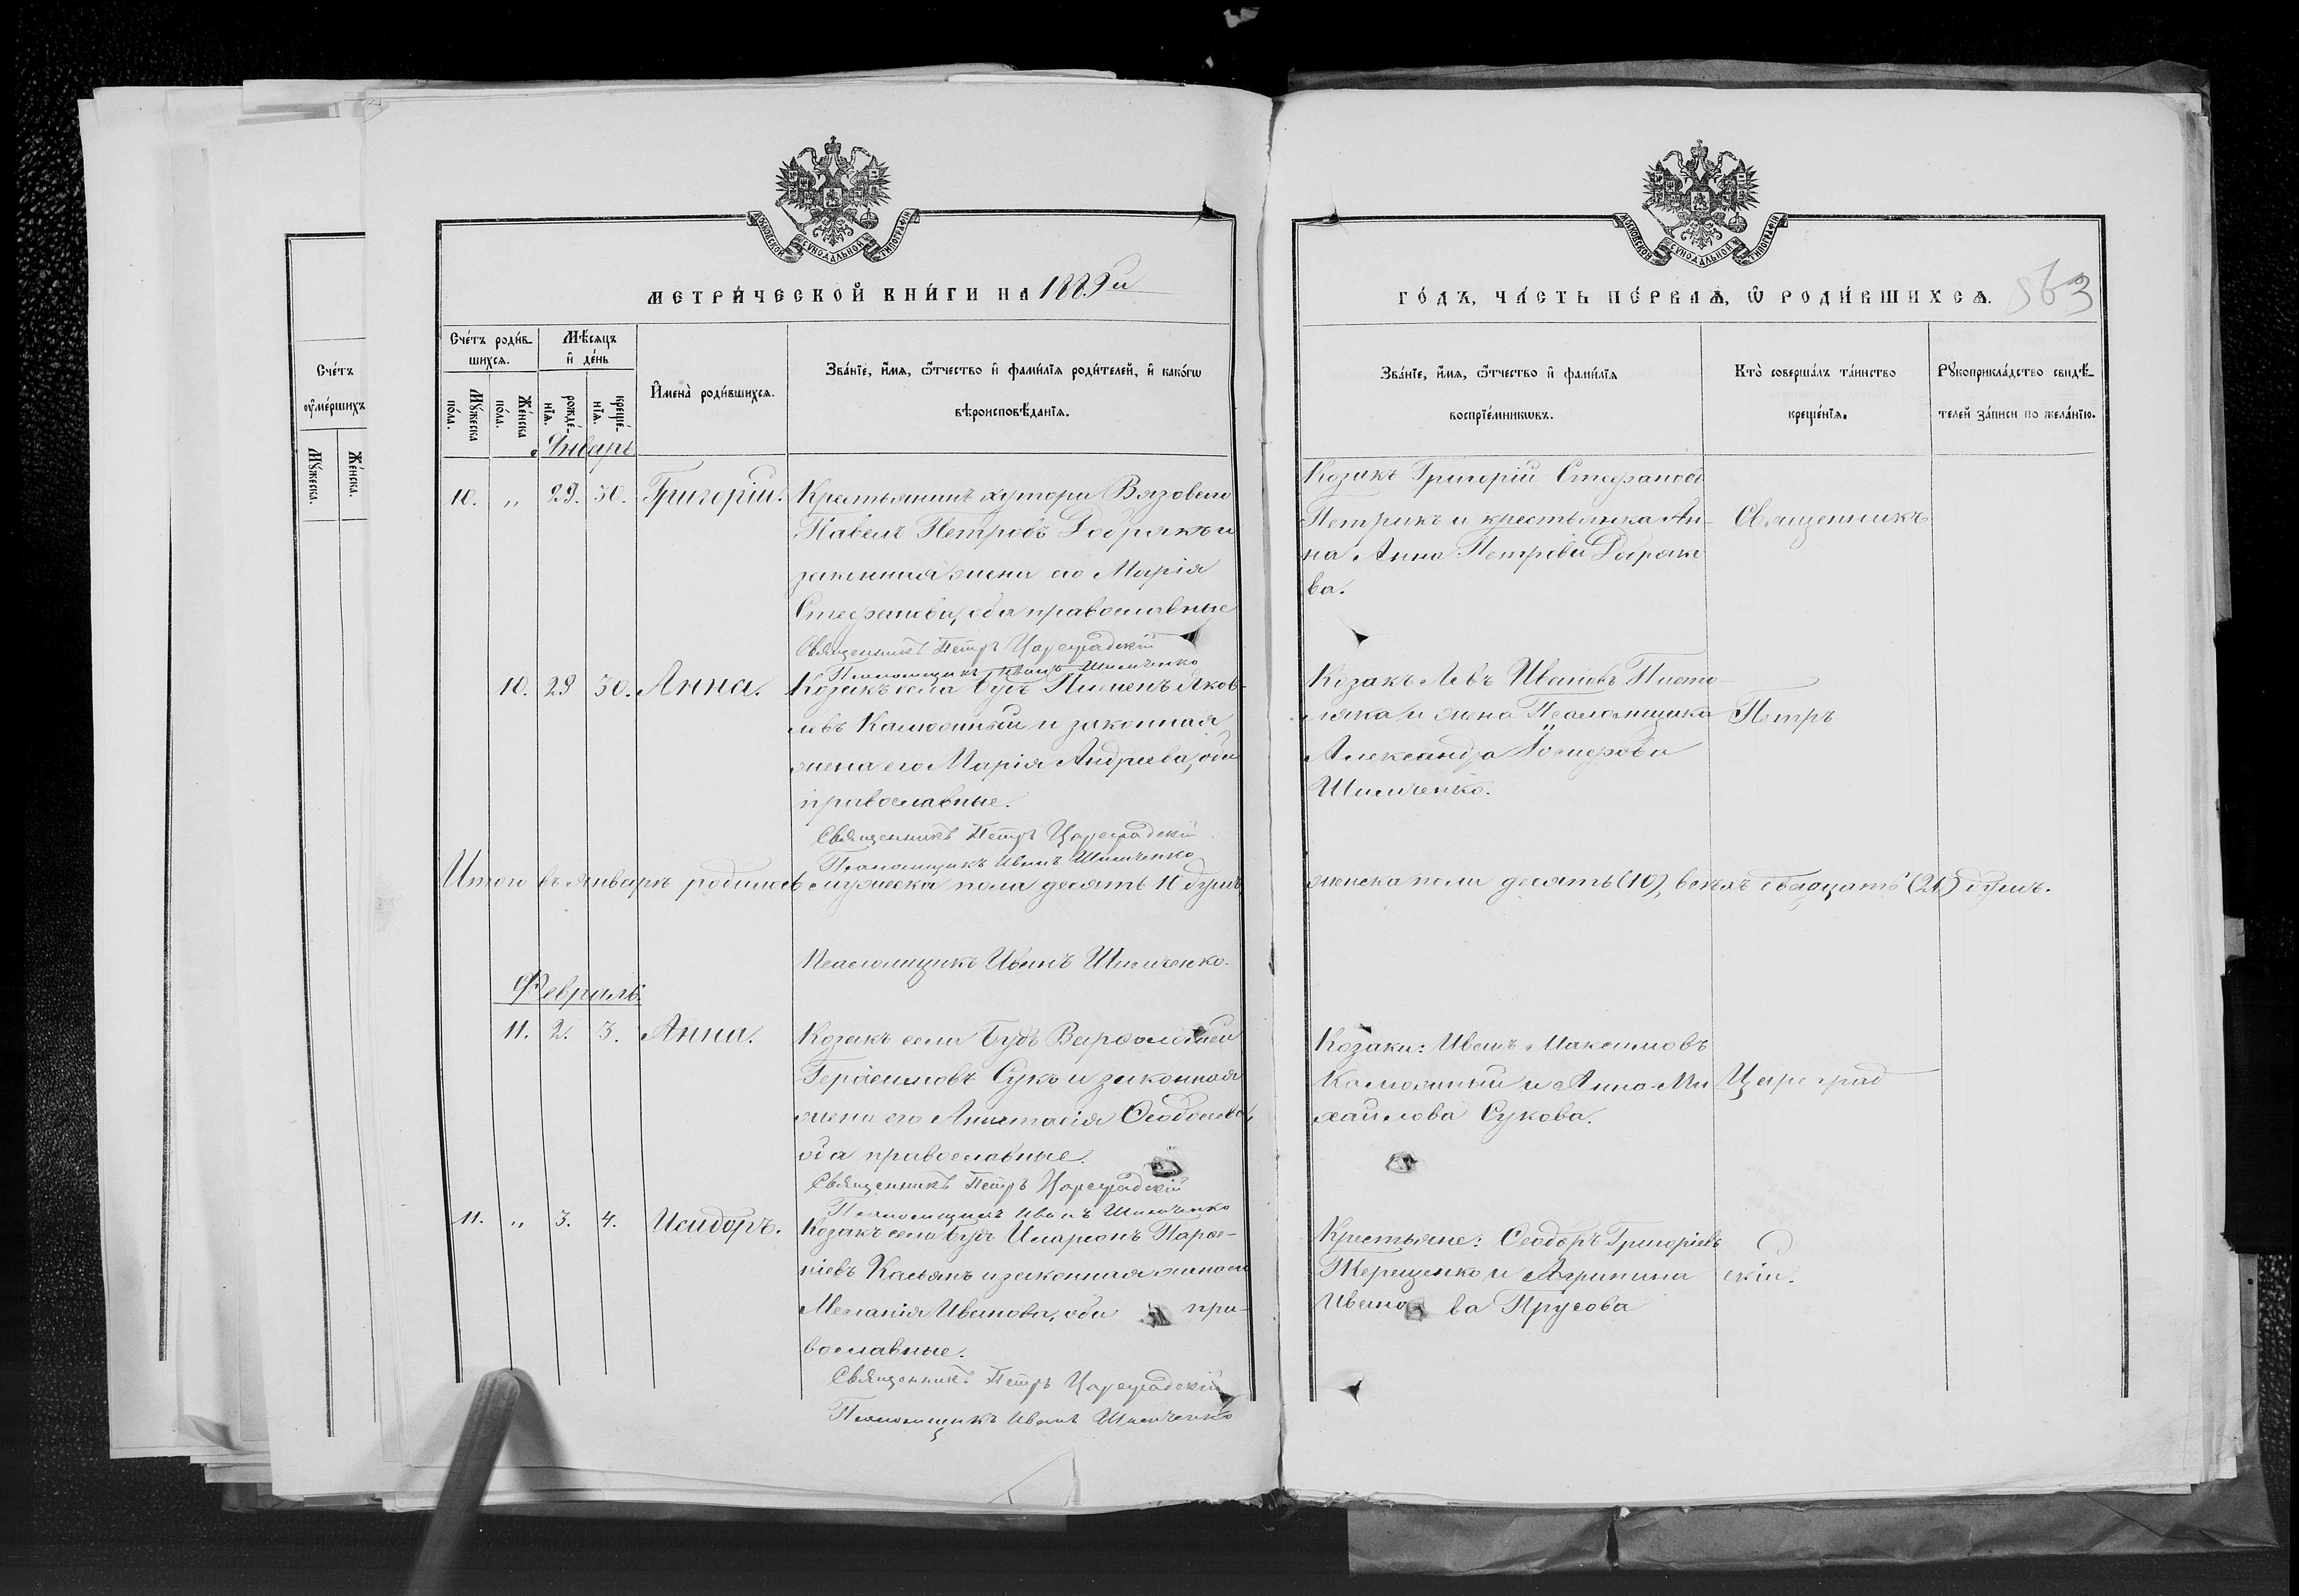 МОСКОВСКОЙ СѴНОДАЛЬНОЙ ТИПОГРАФІИ
МЕТРИ́ЧЕСКОЙ КНИ́ГИ НА 1889й
Сче́тъ роди́в-
шихсѧ.
Мꙋ́жеска
по́ла.
Же́нска
по́ла.
Мѣ́сѧцъ
и҆ де́нь
рожде́-
нїѧ.
креще́-
нїѧ.
И҆мена̀ роди́вшихсѧ.
Зва́нїе, и҆́мѧ, ѻ҆́тчество и҆ фами́лїѧ роди́телей, и҆ како́гѡ
вѣроисповѣ́данїѧ.
Январь
10. „ 29. 30. Григорій. Крестьянинъ хутора Вязоваго
Павелъ Петровъ Добрякъ и
законная жена его Марія
Стефанова, оба православные
Священникъ Петръ Цареградскій
Псаломщикъ Иванъ Шимченко
10. 29 30. Анна. Козакъ села Будъ Пименъ Яков-
левъ Калюжный и законная
жена его Марія Андреева, оба
православные.
Священникъ Петръ Цареградскій
Псаломщикъ Иванъ Шимченко
Итого въ Январѣ родилось мужеска пола десять 10 душъ
Псаломщикъ Иванъ Шимченко.
Февраль.
11. 2. 3. Анна. Козакъ села Будъ Варфоломей
Герасимовъ Сукъ и законная
жена его Анастасія Ѳеодосіева,
оба православные.
Священникъ Петръ Цареградскій
Псаломщикъ Иванъ Шимченко
11. „ 3. 4. Исидоръ. Козакъ села Будъ Иларіонъ Парѳе-
ніевъ Касьянъ и законная жена его
Меланія Иванова, оба пра-
вославные.
Священникъ Петръ Цареградскій
Псаломщикъ Иванъ Шимченко
Сче́тъ
ᲂу҆ме́ршихъ
Мꙋ́жеска.
Же́нска.
МОСКОВСКОЙ СѴНОДАЛЬНОЙ ТИПОГРАФІИ
ГО́ДЪ, ЧА́СТЬ ПЕ́РВАѦ, Ѡ҆ РОДИ́ВШИХСѦ.
563
Зва́нїе, и҆́мѧ, ѻ҆́тчество и҆ фами́лїѧ
воспрїе́мникѡвъ.
Кто̀ соверша́лъ та́инство
креще́нїѧ.
Рꙋкоприкла́дство свидѣ́-
телей за́писи по жела́нїю.
Козакъ Григорій Стефановъ
Петрикъ и крестьянка Ан-
на Анна Петрова Добряко
ва.
Священникъ
Козакъ Левъ Ивановъ
и жена Псаломщика
Александра Іосифова
Шимченко.
Петръ
женска пола десять (10), всѣхъ двадцать (20) душъ.
Козаки: Иванъ Максимовъ
Калюжный и Анна Ми
хайлова Сукова.
Цареград
Крестьяне: Ѳеодоръ Григоріевъ
Терещенко и Агрипина
Ивано ва Прусова
скій.